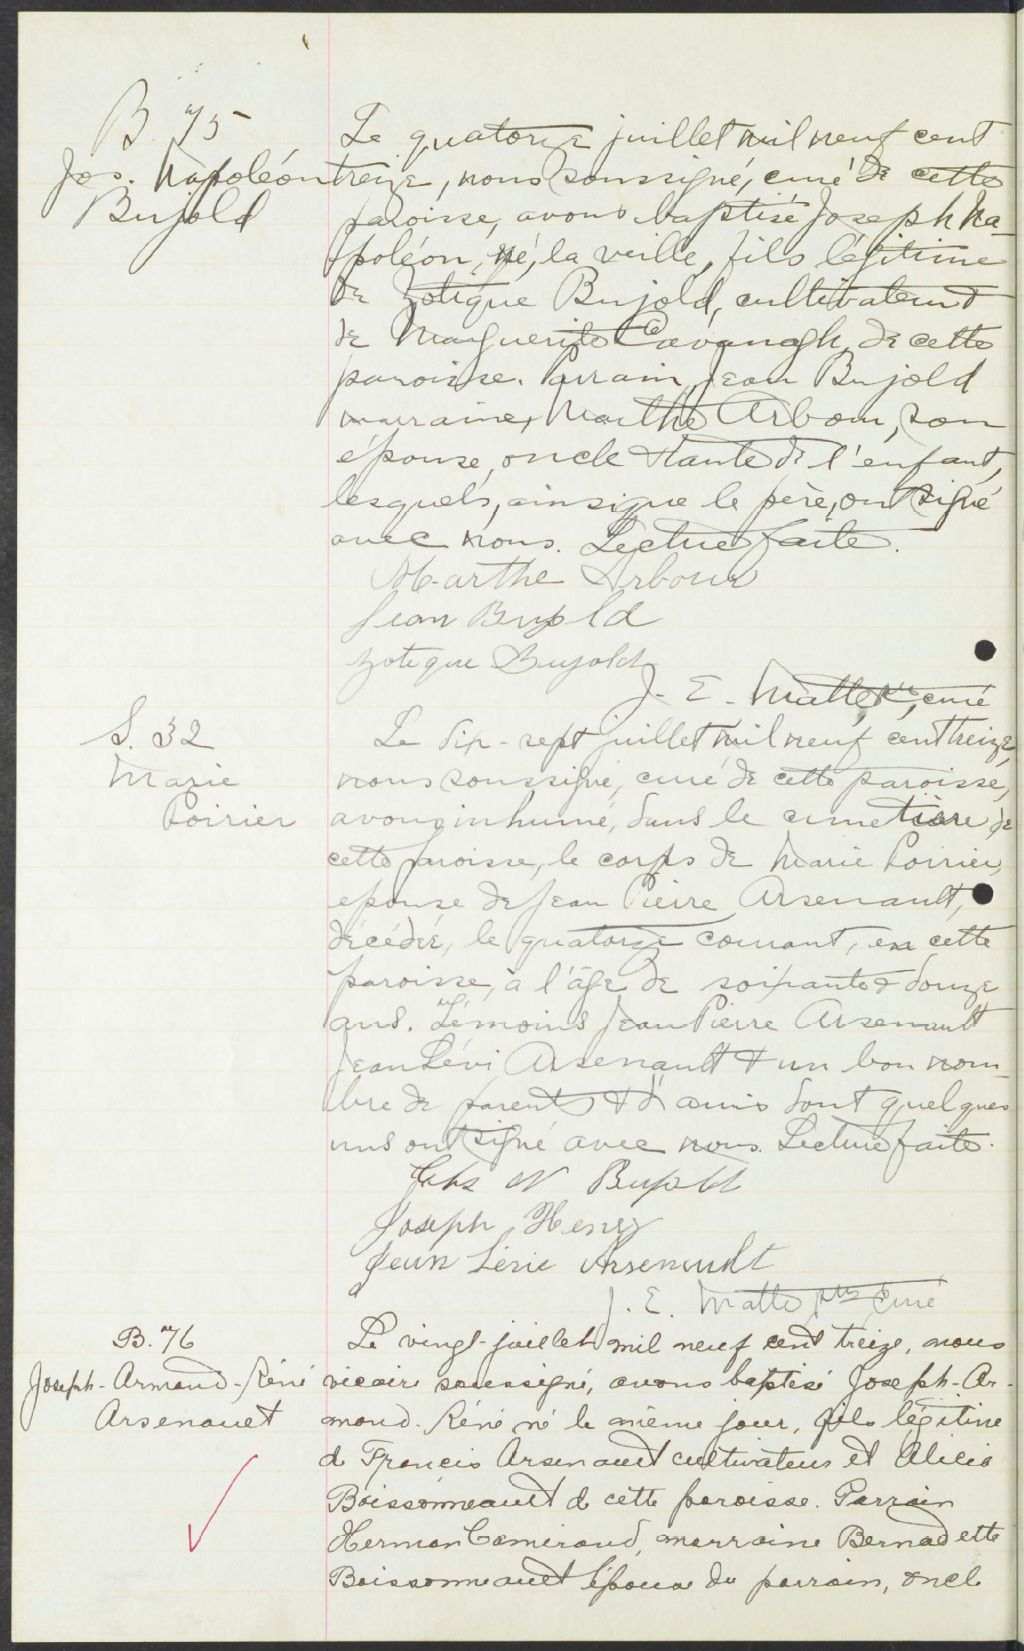 B. 75
Jos. Napoléon
Bujold
Le quatorze juillet mil neuf cent
treize, nous soussigné, curé de cette
paroisse, avons baptisé Joseph Na-
poléon, né, la veille, fils légitime
de Zotique Bujold, cultivateur &
de Marguerite Cavanagh, de cette
paroisse. Parrain, Jean Bujold
marraine, Marthe Arbour, son
épouse, oncle & tante de l'enfant,
lesquels, ainsi que le père, ont signé
avec nous. Lecture faite.
Marthe Arbour
Jean Bujold
Zotique Bujold
J. E. Matte, ptre, curé
S. 32
Marie
Poirier
Le dix-sept juillet mil neuf cent treize,
nous soussigné, curé de cette paroisse,
avons inhumé, dans le cimetière de
cette paroisse, le corps de Marie Poirier,
épouse de Jean Pierre Arsenault,
décédée, le quatorze courant, en cette
paroisse, à l'âge de soixante & douze
ans. Témoins Jean Pierre Arsenault
Jean Lévi Arsenault & un bon nom-
bre de parents & d'amis dont quelques
uns ont signé avec nous. Lecture faite.
N Bujold
Joseph Henry
Jean Lévie Arsenault
J. E. Matte ptre curé
B. 76
Joseph-Armand-Réné
Arsenault
Le vingt juillet mil neuf cent treize, nous
vicaire soussigné, avons baptisé Joseph-Ar-
mand-Réné né le même jour, fils légitime
de Francis Arsenault cultivateur et Alicia
Boissonneault de cette paroisse. Parrain
Herman Cameraud, marraine Bernadette
Boissonneault épouse du parrain, oncle